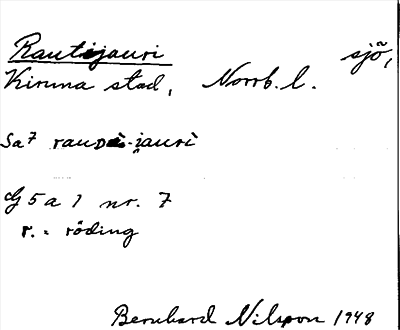 Rautijauri sjö,
Kiruna stad, Norrb. l.
Sa7 rauᴅì-i̯aurì
G 5 a 1 nr. 7
r. = röding
Bernhard Nilsson 1948